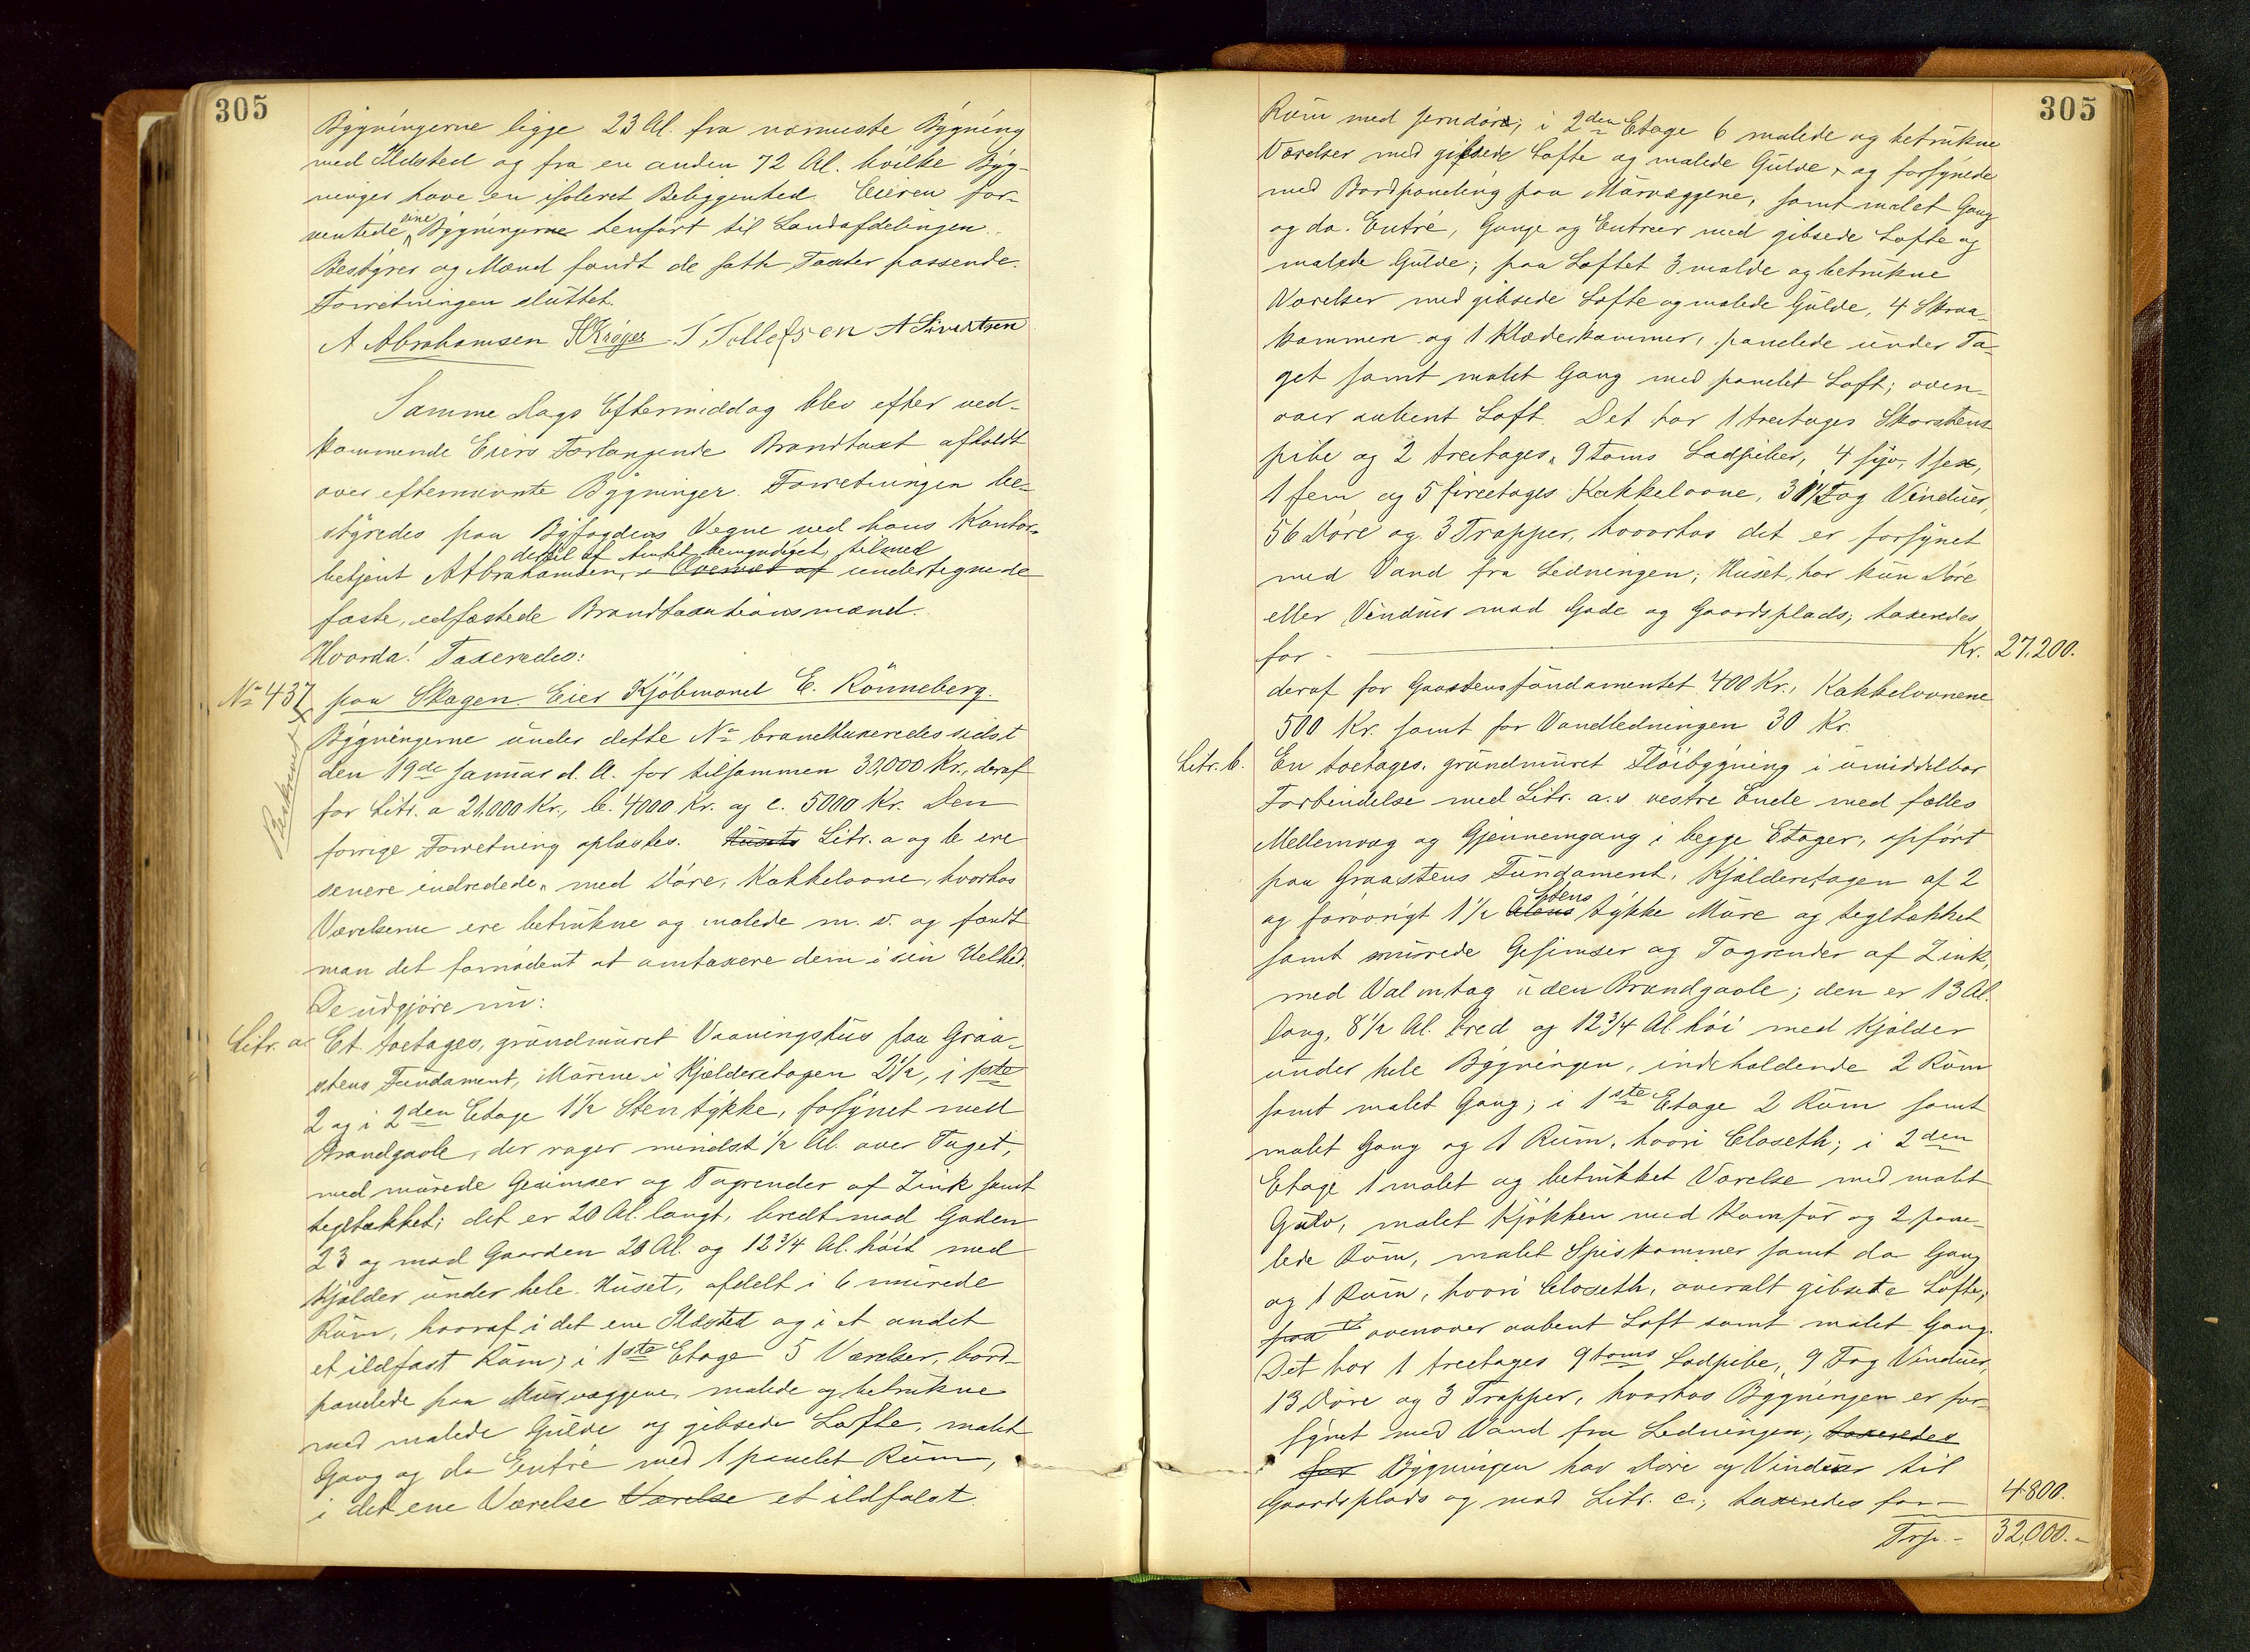 305
Bygningerne ligge 23 Al. fra nærmeste Bygning
med Ildsted og fra en anden 72 Al. hvilke Byg-
ninger have en isoleret Beliggenhed. Eieren for-
ventede sine Bygningerne henført til Landafdelingen.
Bestyrer og Mænd fandt de satte Taxter passende.
Forretningen sluttet.
A Abrahamsen HKrøger. T. Tollefsen A Sivertsen
Samme Dags Eftermiddag blev efter ved-
kommende Eiers Forlangende Brandtaxt afholdt
over efternævnte Bygninger. Forretningen be-
styredes paa Byfogdens Vegne ved hans Kontor-
dertil af Amtet bemyndiget, tilmed
betjent A Abrahamsen, i Overvær af undertegnede
faste, edfæstede Brandtaxationsmænd.
Hvorda! Taxeredes:
No 437 paa Skagen. Eier Kjøbmand E. Rönneberg.
Beskrevet
Bygningerne under dette No brandtaxeredes sidst
den 19de Januar d. A. for tilsammen 30,000 Kr., deraf
for Litr. a 21.000 Kr., b. 4000 Kr. og c. 5000 Kr. Den
forrige Forretning oplæstes. Husets Litr. a og b ere
senere indredede, med Døre, Kakkelovne, hvorhos
Værelserne ere betrukne og malede m. v. og fandt
man det fornødent at omtaxere dem i sin Helhed.
De udgjøre nu:
Litr. a. Et toetages, grundmuret Vaaningshus paa Graa-
stens Fundament, Murene i Kjelderetagen 2½, i 1ste
2 og i 2den Etage 1½ Sten tykke, forsynet med
Brandgavle, der rager mindst ½ Al. over Taget,
med murede Gesimser og Tagrender af Zink samt
tegltækket; det er 20 Al. langt, bredt mod Gaden
23 og mod Gaarden 20 Al. og 12¾ Al. høit med
Kjelder under hele Huset, afdelt i 6 murede
Rum, hvoraf i det ene Ildsted og i et andet
et ildfast Rum; i 1ste Etage 5 Værelser, bord-
panelede paa Murvæggene, malede og betrukne
med malede Gulve og gibsede Lofte, malet
Gang og do Entré med 1 panelet Rum,
i det ene Værelse Værelse et ildfast
305
Rum med Jerndøre; i 2den Etage 6 malede og betrukne
Værelser med gibsede Lofte og malede Gulve, og forsynede
med Bordpaneling paa Murvæggene, samt malet Gang
og do. Entré, Gange og Entreer med gibsede Lofte og
malede Gulve; paa Loftet 3 malde og betrukne
Værelser med gibsede Lofte og malede Gulve, 4 Skraa-
kammere og 1 Klædeskammer, panelede under Ta-
get samt malet Gang med panelet Loft; oven-
over aabent Loft. Det har 1 treetages Skorstens
pibe og 2 treetages, 9 toms Ladpiber, 4 syv, 1 sex,
1 fem og 5 fireetages Kakkelovne, 31½ Fag Vinduer,
56 Døre og 3 Trapper, hvorhos det er forsynet
med Vand fra Ledningen; Huset har kun Døre
eller Vinduer mod Gade og Gaardsplads; taxeredes
for - Kr. 27,200.
deraf for Graastensfundamentet 400 Kr., Kakkelovnene
500 Kr. samt for Vandledningen 30 Kr.
Litr. b. En toetages, grundmuret Fløibygning i umiddelbar
Forbindelse med Litr. a.s vestre Ende med fælles
Mellemvæg og Gjennemgang i begge Etager, opført
paa Graastens Fundament, Kjelderetagen af 2
Stens
og forøvrigt 1½ Alens tykke Mure og tegltækket
samt murede Gesimser og Tagrender af Zink,
med Valmtag uden Brandgavle; den er 13 Al.
lang, 8½ Al. bred og 12¾ Al. høi med Kjelder
under hele Bygningen, indeholdende 2 Rum
samt malet Gang; i 1ste Etage 2 Rum samt
malet Gang og 1 Rum, hvori Closeth; i 2den
Etage 1 malet og betrukket Værelse med malet
Gulv, malet Kjøkken med Komfur og 2 pane-
lede Rum, malet Spiskammer samt do Gang
og 1 Rum, hvori Closeth, overalt gibsede Lofte;
paa ovenover aabent Loft samt malet Gang.
Det har 1 treetages 9 toms Ladpibe, 9 Fag Vinduer,
13 Døre og 3 Trapper, hvorhos Bygningen er for-
synet med Vand fra Ledningen; taxeredes
for Bygningen har Døre og Vinduer til
Gaardsplads og mod Litr. c.; taxeredes for - 4800.
Trsp. - 32,000.-